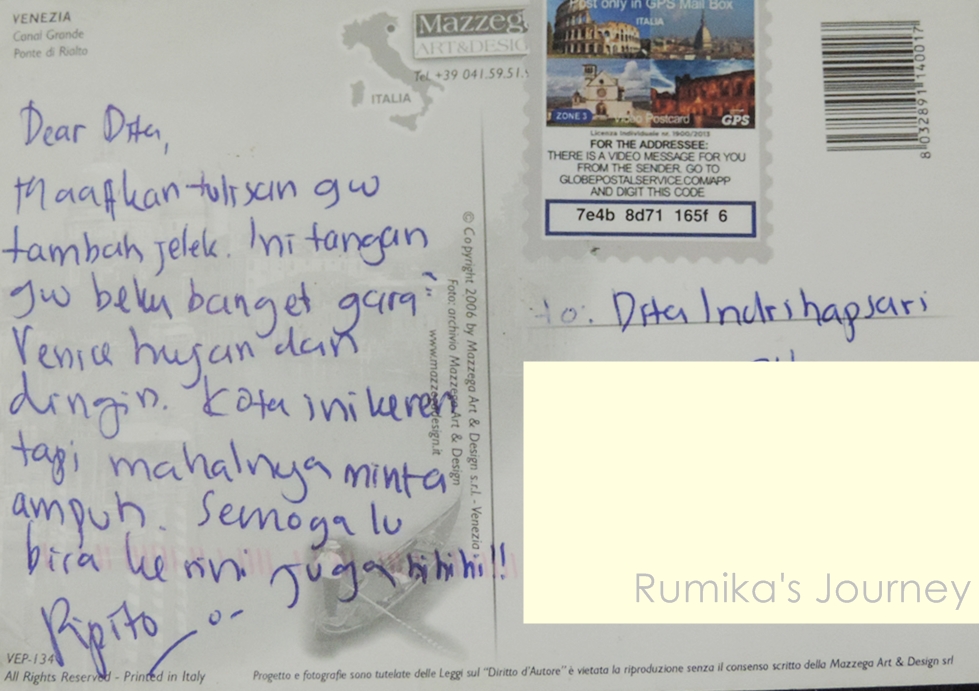 VENEZIA
Canal Grande
Ponte di Rialto
Mazzega
ART&DESIG
Tel. +39 041.59.51.
ITALIA
Dear Dita,
Maafkan tulisan gw
tambah jelek. Ini tangan
gw beku banget gara"
Venice hujan dan
dingin. Kota ini keren
tapi mahalnya minta
ampuh. Semoga lu
bisa ke sini juga hihihi!!
Pipito
VEP-134
All Rights Reserved - Printed in Italy
© Copyright 2006 by Mazzega Art & Design s.r.l. - Venezia
Foto: archivio Mazzega Art & Design
www.mazzegadesign.it
Post only in GPS Mail Box
ITALIA
ZONE 3
Video Postcard
GPS
Licenza Individuale nr. 1900/2013
FOR THE ADDRESSEE:
THERE IS A VIDEO MESSAGE FOR YOU
FROM THE SENDER. GO TO
GLOBEPOSTALSERVICE.COM/APP
AND DIGIT THIS CODE
7e4b 8d71 165f 6
8 032891 140017
to: Dita Indrihapsari
Rumika's Journey
Progetto e fotografie sono tutelate delle Leggi sul "Diritto d'Autore" è vietata la riproduzione senza il consenso scritto della Mazzega Art & Design srl